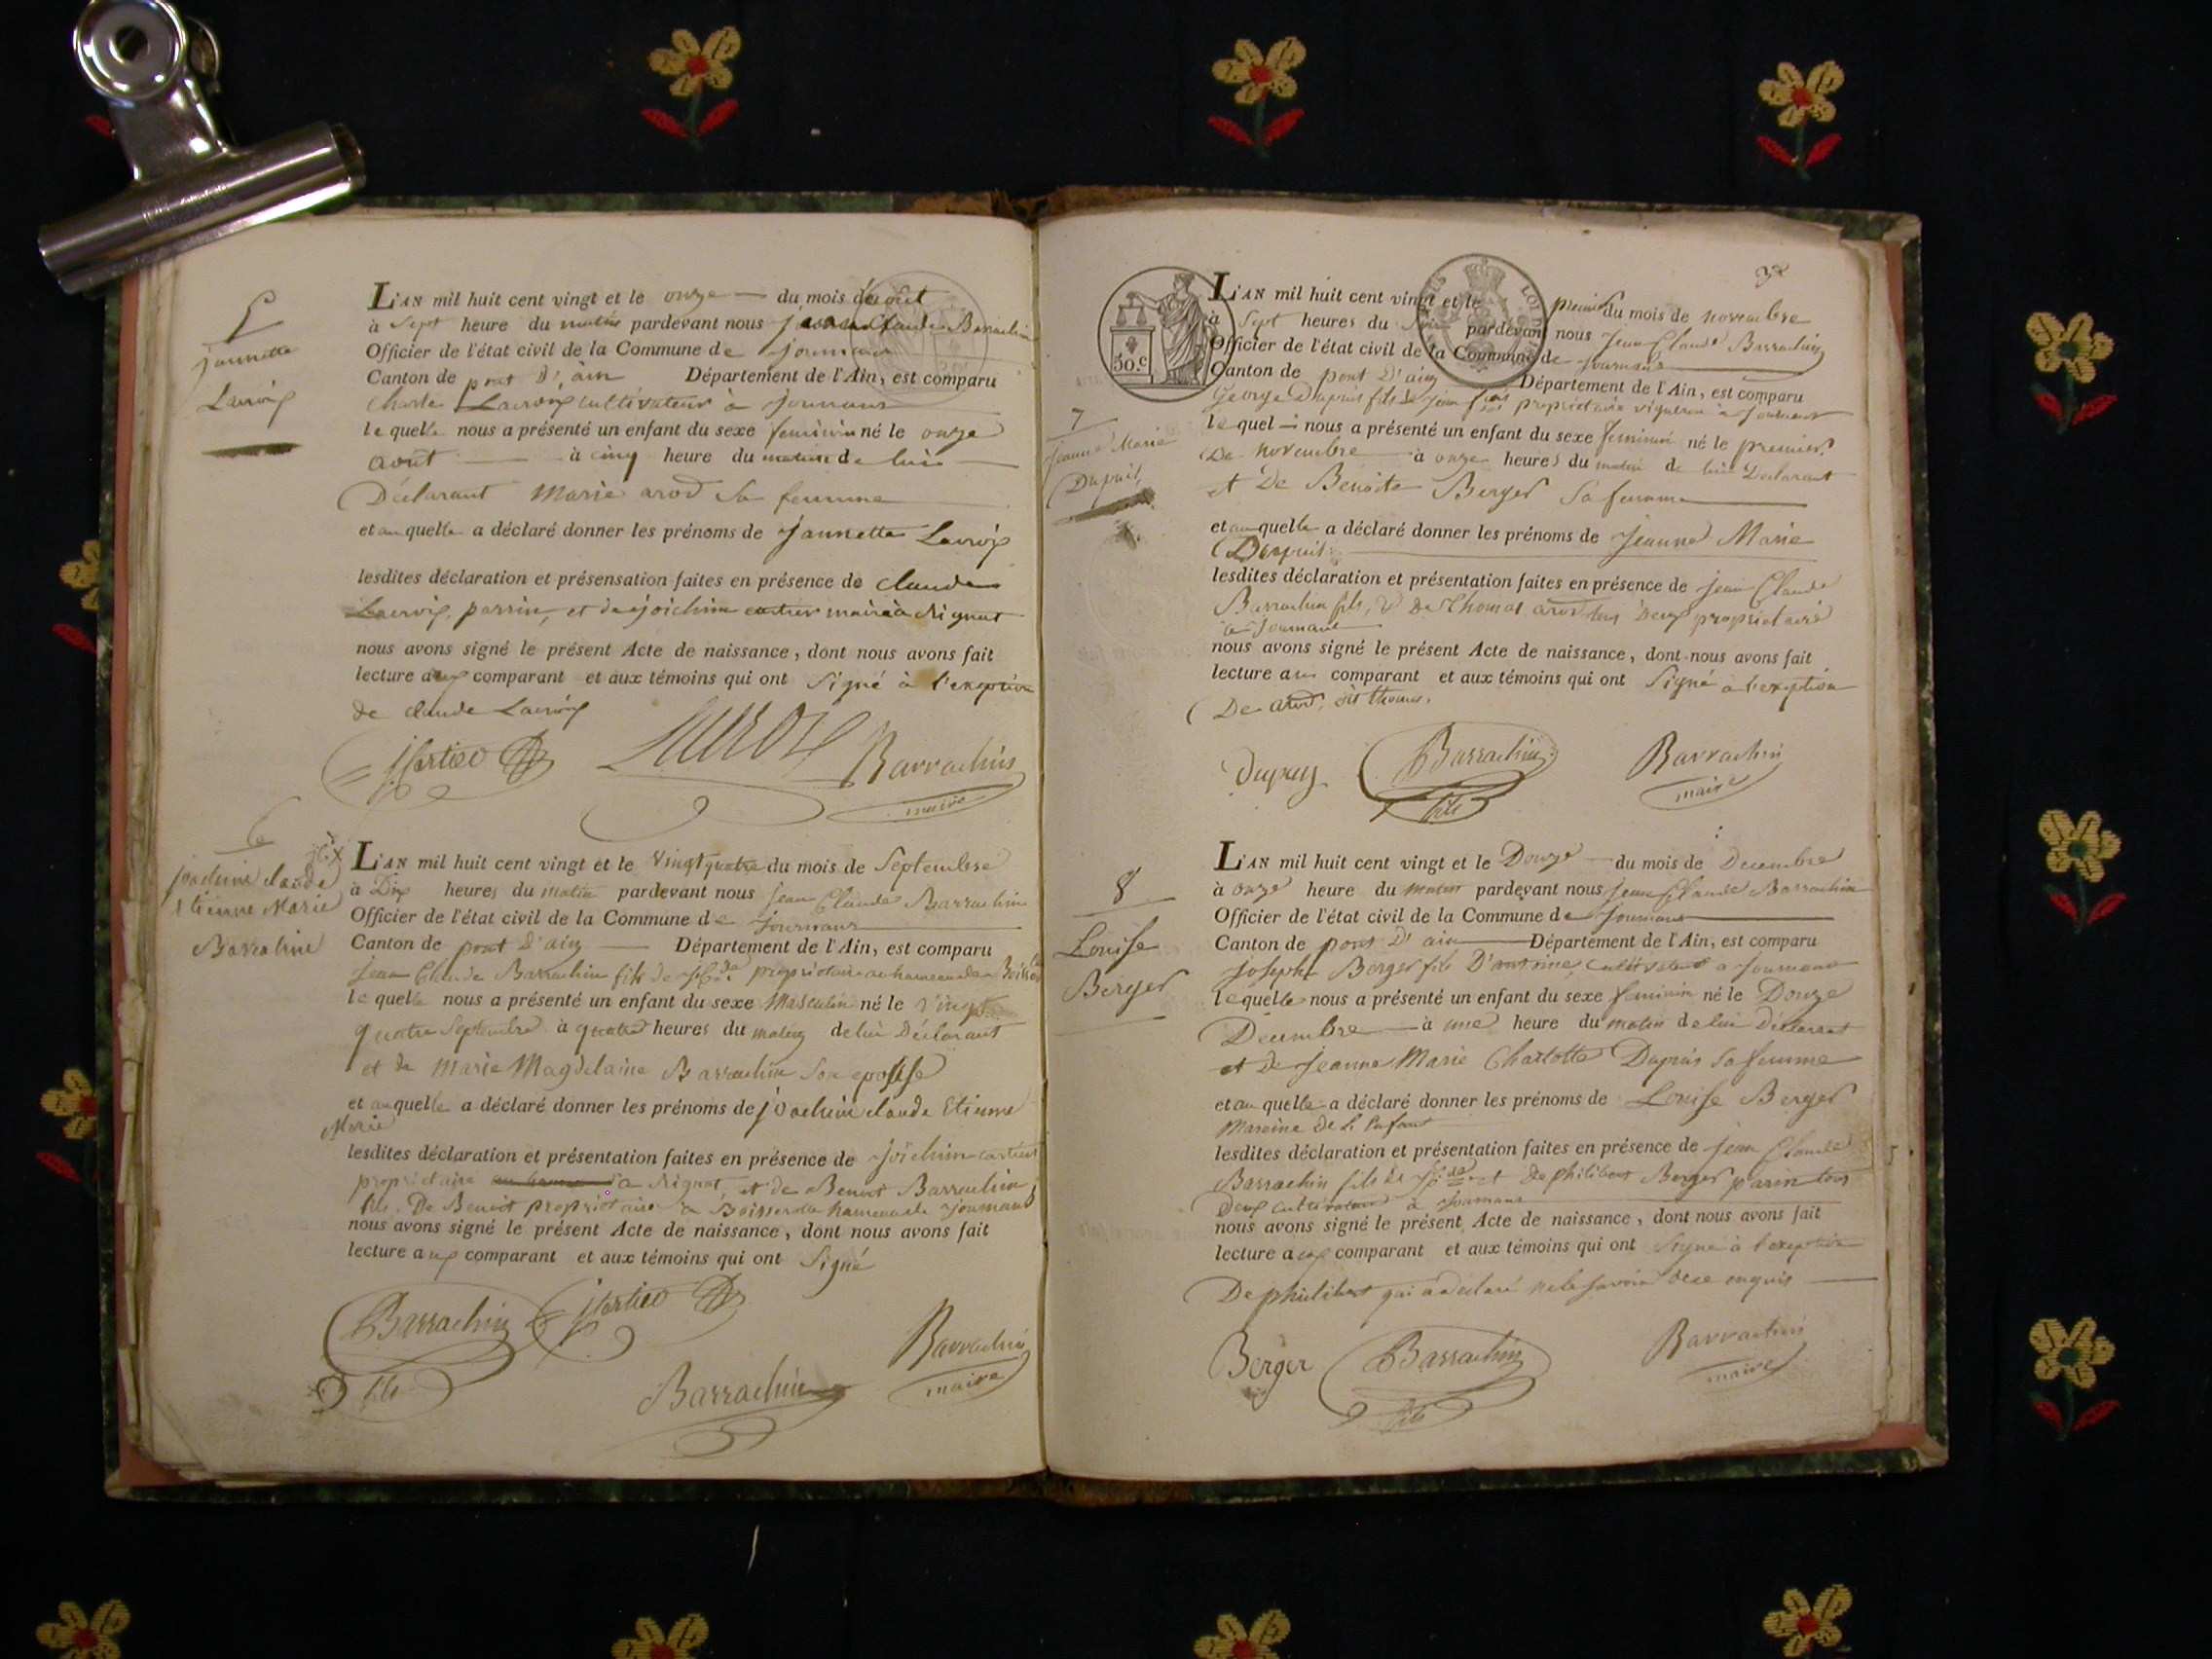 5
Jannette
Lacroix
L'AN mil huit cent vingt et le onze du mois daoût
à Sept heure du matin pardevant nous Jean Claude Barrachin
Officier de l'état civil de la Commune de Journans
Canton de pont D'ain Département de l'Ain, est comparu
Charle Lacroix cultivateur à Journans
le quelle nous a présenté un enfant du sexe feminin né le onze
aout à cinq heure du matin de lui
Déclarant Marie arod Sa femme
et au quelle a déclaré donner les prénoms de Jannette Lacroix
lesdites déclaration et présensation faites en présence de claude
Lacroix, parrin, et de joichim cartier maire à Rignat
nous avons signé le présent Acte de naissance, dont nous avons fait
lecture aux comparant et aux témoins qui ont Signé à l'exeption
de claude Lacroix
jCartier Lacroix Barrachin
maire
6
joachim claude
Etienne Marie
Barrachin
L'AN mil huit cent vingt et le vingt quatre du mois de Septembre
à Dix heures du matin pardevant nous Jean Claude Barrachin
Officier de l'état civil de la Commune de Journans
Canton de pont D'ain Département de l'Ain, est comparu
Jean Claude Barrachin fils de propriétaire au hameau de
le quelle nous a présenté un enfant du sexe Masculin né le vingt
quatre Septembre à quatre heures du matin de lui Déclarant
et de Marie Magdelaine Barrachin Son epouse
et au quelle a déclaré donner les prénoms de joachim claude Etienne
Marie
lesdites déclaration et présentation faites en présence de joichim cartier
propriétaire a Rignat, et de Benoit Barrachin
fils De Benoit propriétaire a hameau de Journans
nous avons signé le présent Acte de naissance, dont nous avons fait
lecture aux comparant et aux témoins qui ont Signé
Barrachin jCartier
fils
Barrachin Barrachin
maire
50.c
LOI
7
Jeanne Marie
Dupuit
L'AN mil huit cent vingt et le premier du mois de novembre
à Sept heures du Soir pardevant nous Jean Claude Barrachin
Officier de l'état civil de la Commune de Journans
Canton de pont D'ain Département de l'Ain, est comparu
George Dupuis fils de Jean propriétaire vigneron à Journans
le quel nous a présenté un enfant du sexe feminin né le premier
De novembre à onze heures du matin de lui Déclarant
et De Benoite Berger Sa femme
et au quelle a déclaré donner les prénoms de Jeanne Marie
Dupuis
lesdites déclaration et présentation faites en présence de Jean Claude
Barrachin fils, & De Thomas arod tous Deux propriétaire
a Journans
nous avons signé le présent Acte de naissance, dont nous avons fait
lecture aux comparant et aux témoins qui ont Signé a l'exeption
De arod, dit thomas.
Dupuy Barrachin Barrachin
fils maire
8
Louise
Berger
L'AN mil huit cent vingt et le Douze du mois de Decembre
à onze heure du matin pardevant nous Jean Claude Barrachin
Officier de l'état civil de la Commune de Journans
Canton de pont D'ain Département de l'Ain, est comparu
Joseph Berger fils D'antoine, cultivateur a Journans
le quelle nous a présenté un enfant du sexe feminin né le Douze
Décembre à une heure du matin de lui Déclarant
et de Jeanne Marie Charlotte Dupuis Sa femme
et au quelle a déclaré donner les prénoms de Louise Berger
Maraine De L'Enfant
lesdites déclaration et présentation faites en présence de Jean Claude
Barrachin fils de et de philibert Berger parin tous
Deux cultivateur à Journans
nous avons signé le présent Acte de naissance, dont nous avons fait
lecture aux comparant et aux témoins qui ont Signé à l'exeption
De philibert qui a déclaré ne le savoir de ce enquis
Berger Barrachin Barrachin
fils maire